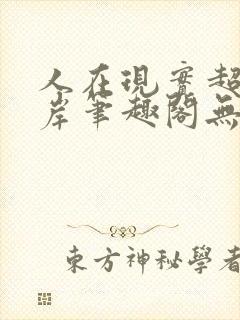 人在現實超
岸筆趣閣無
東方神秘學者